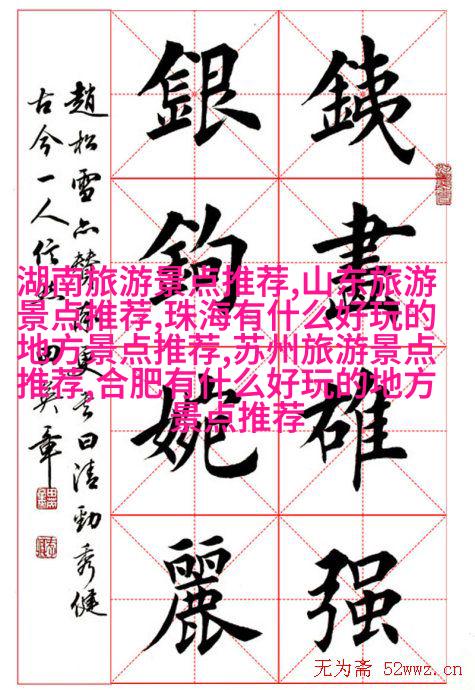 銕畫雄强
銀鉤婉麗
趙松雪亦贊曰清勁秀健
古今一人信然 田英章
湖南旅游景点推荐,山东旅游
景点推荐,珠海有什么好玩的
地方景点推荐,苏州旅游景点
推荐,合肥有什么好玩的地方
景点推荐
无为斋 52wwz.cn